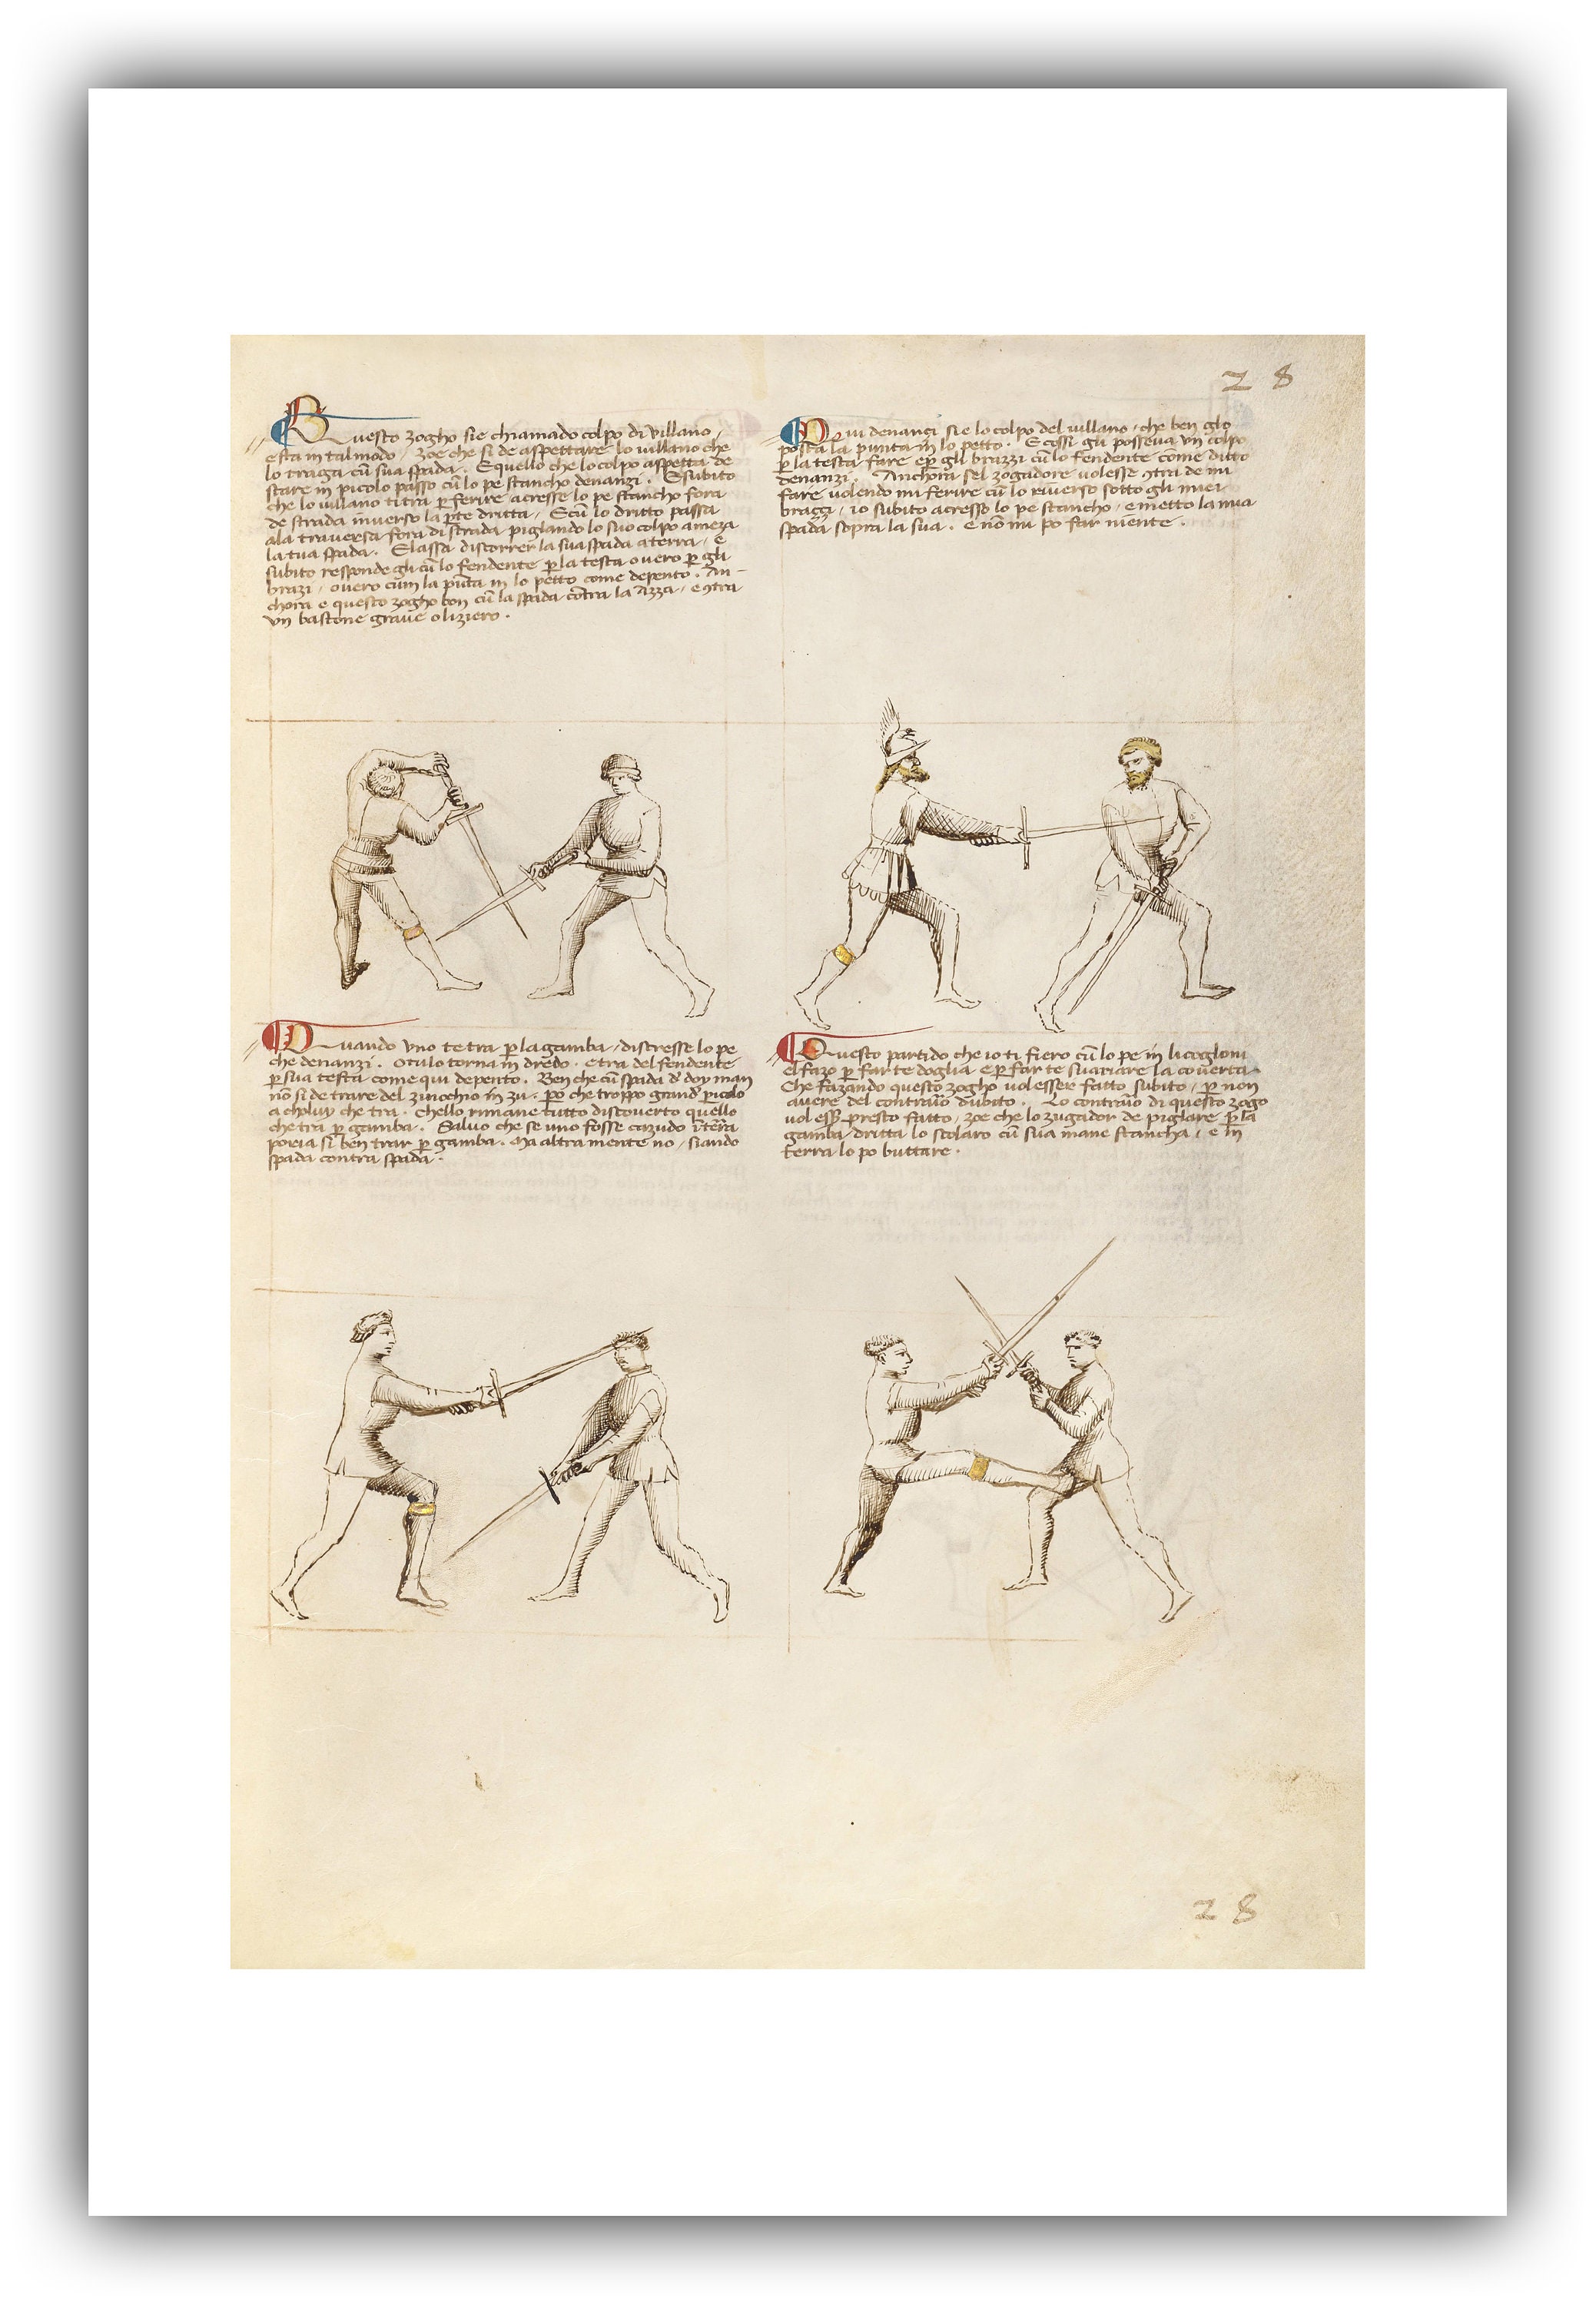 28
Questo zogho sie chiamado colpo di villano,
e sta in tal modo, zoe che si de aspettare lo villano che
lo traga cū sua spada. E quello che lo colpo aspetta de
stare in picolo passo cū lo pe stancho denanzi. E subito
che lo villano ti tra ꝑ ferire acresse lo pe stancho fora
de strada inverso la ꝑte dritta, E cū lo dritto passa
ala traversa fora di strada piglando lo suo colpo a meza
la tua spada. E lassa discorrer la sua spada a terra, e
subito responde gli cū lo fendente ꝑ la testa overo ꝑ gli
brazi, overo cum la pūta in lo petto come depento. An-
chora e questo zogho bon cū la spada cōtra la azza, e ɔtra
un bastone grave o liziero.
Qui denanci sie lo colpo del villano, che ben glo
posta la punta in lo petto. E cossi gli posseva un colpo
ꝑ la testa fare e ꝑ gli brazzi cū lo fendente come ditto
denanzi. Anchora sel zogadore volesse ɔtra de mi
fare volendo mi ferire cū lo riverso sotto gli miei
brazzi, io subito acresso lo pe stancho, e metto la mia
spada sopra la sua. e nō mi po far niente.
Quando uno te tra ꝑ la gamba, discresse lo pe
che denanzi. o tu lo torna in dredo. e tra del fendente
ꝑ sua testa come qui depento. Ben che cū spada d' doy man
nō si de trare del zinochio in zu. ꝑo che troppo grand' ꝑicolo
a choluy che tra. Chello rimane tutto discoverto quello
che tra ꝑ gamba. Salvo che se uno fosse cazudo ī terra
poria si ben trar ꝑ gamba. Ma altra mente no, siando
spada contra spada.
Questo partido che io ti fiero cū lo pe in li coglioni
el fazo ꝑ farte doglia e ꝑ far te svariare la coverta.
Che fazando questo zogho vol esser fatto subito, ꝑ non
avere del contrario dubito. Lo contrario di questo zogo
vol esser presto fatto, zoe che lo zugador de piglare ꝑ la
gamba dritta lo scolaro cū sua mane stancha, e in
terra lo po buttare.
28